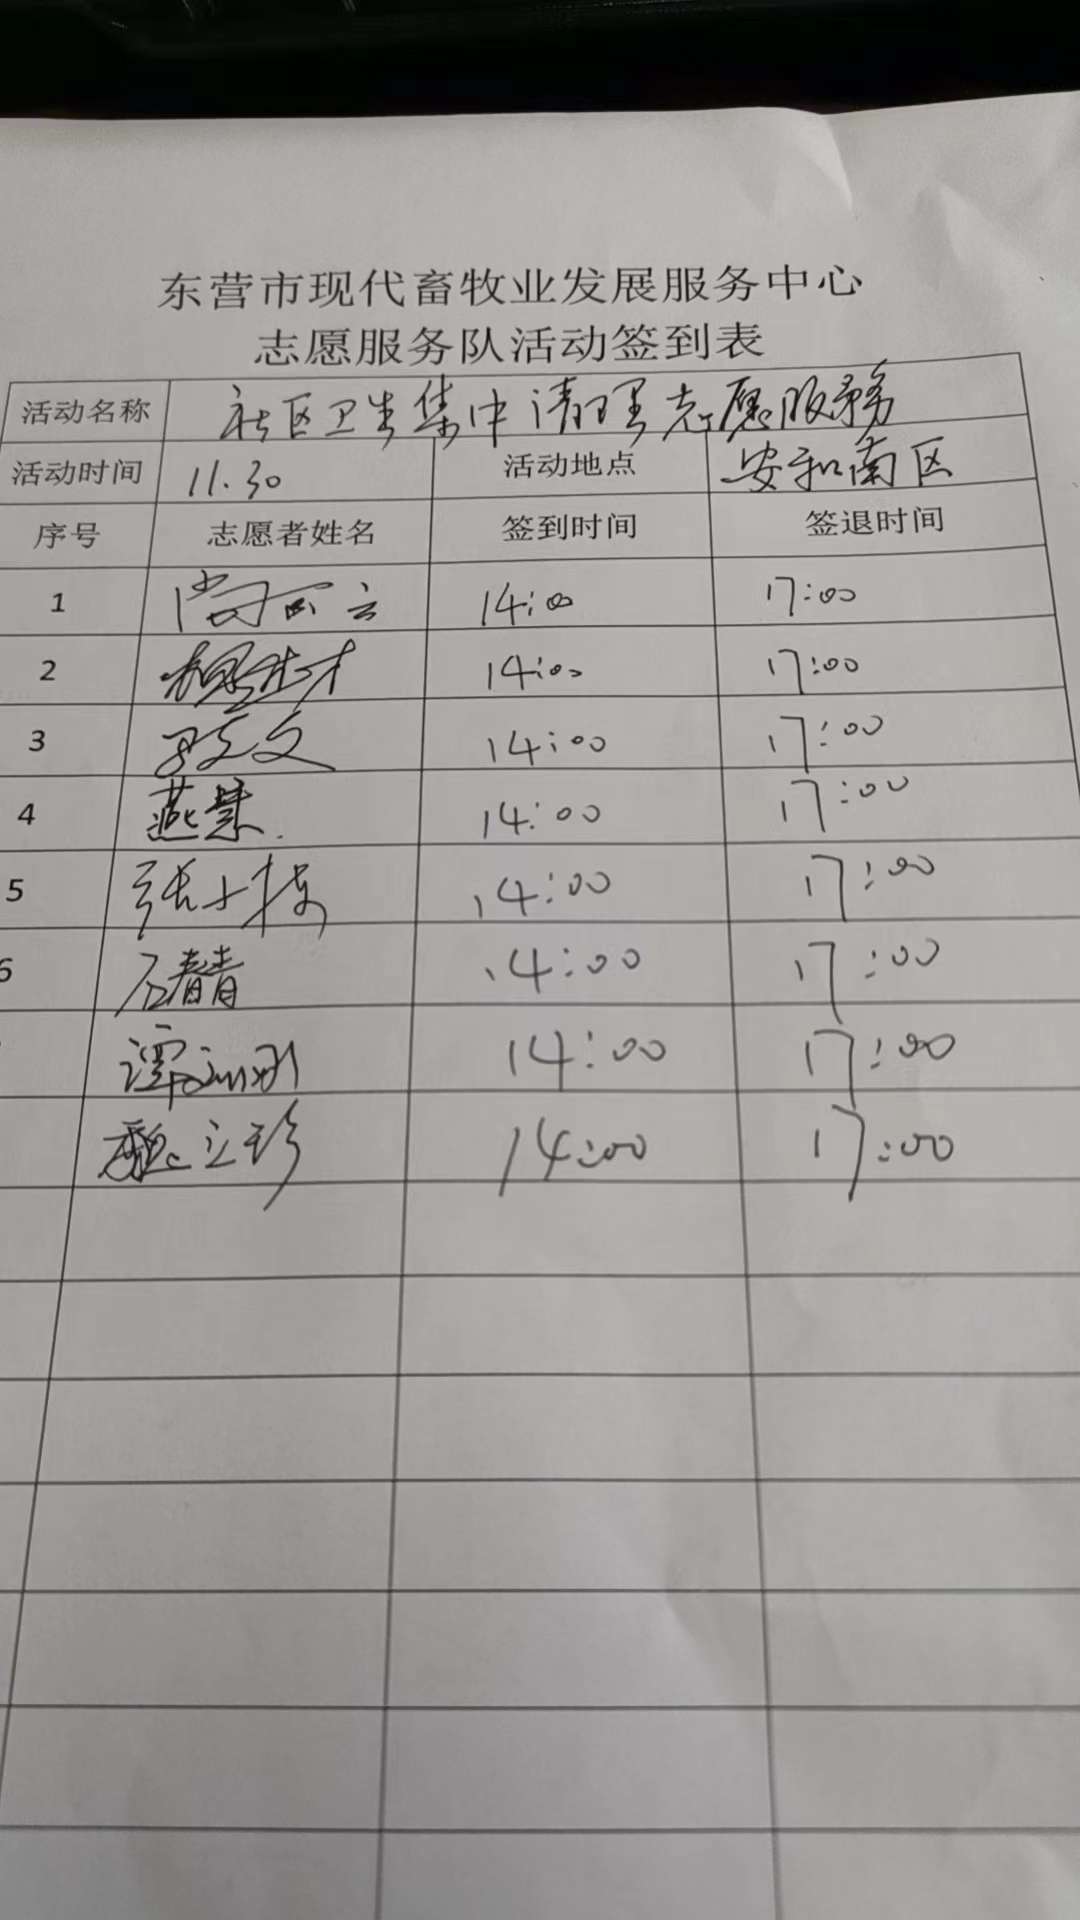 东营市现代畜牧业发展服务中心
志愿服务队活动签到表
活动名称 社区卫生集中请理志愿服务
活动时间 11.30 活动地点 安和南区
序号 志愿者姓名 签到时间 签退时间
1 14:00 17:00
2 14:00 17:00
3 14:00 17:00
4 燕慧 14:00 17:00
5 张小栋 14:00 17:00
6 石春青 14:00 17:00
14:00 17:00
魏立珍 14:00 17:00